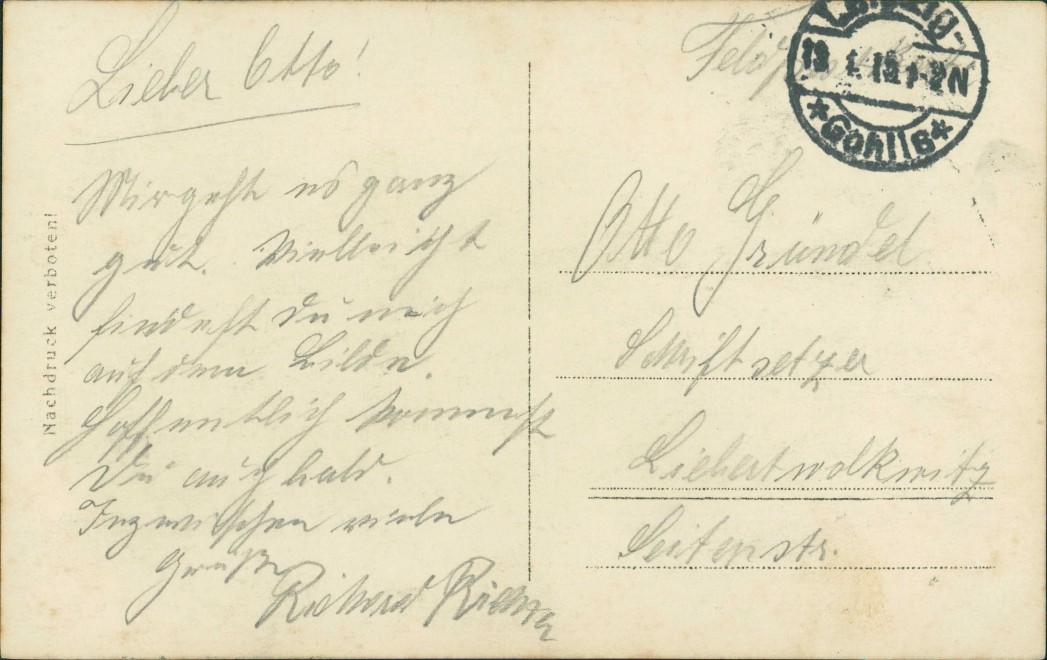 Lieber Otto!
Mir geht es ganz
gut. Vielleicht
findest du mich
auf dem Bilde.
Hoffentlich kommst
Du auch bald.
Inzwischen viele
Grüße
Richard Richter
Nachdruck verboten!
Feldpost
Leipzig-
19.1.15. 1-2N
*Gohlis*
Otto Gründel
Schriftsetzer
Liebertwolkwitz
Seitenstr.